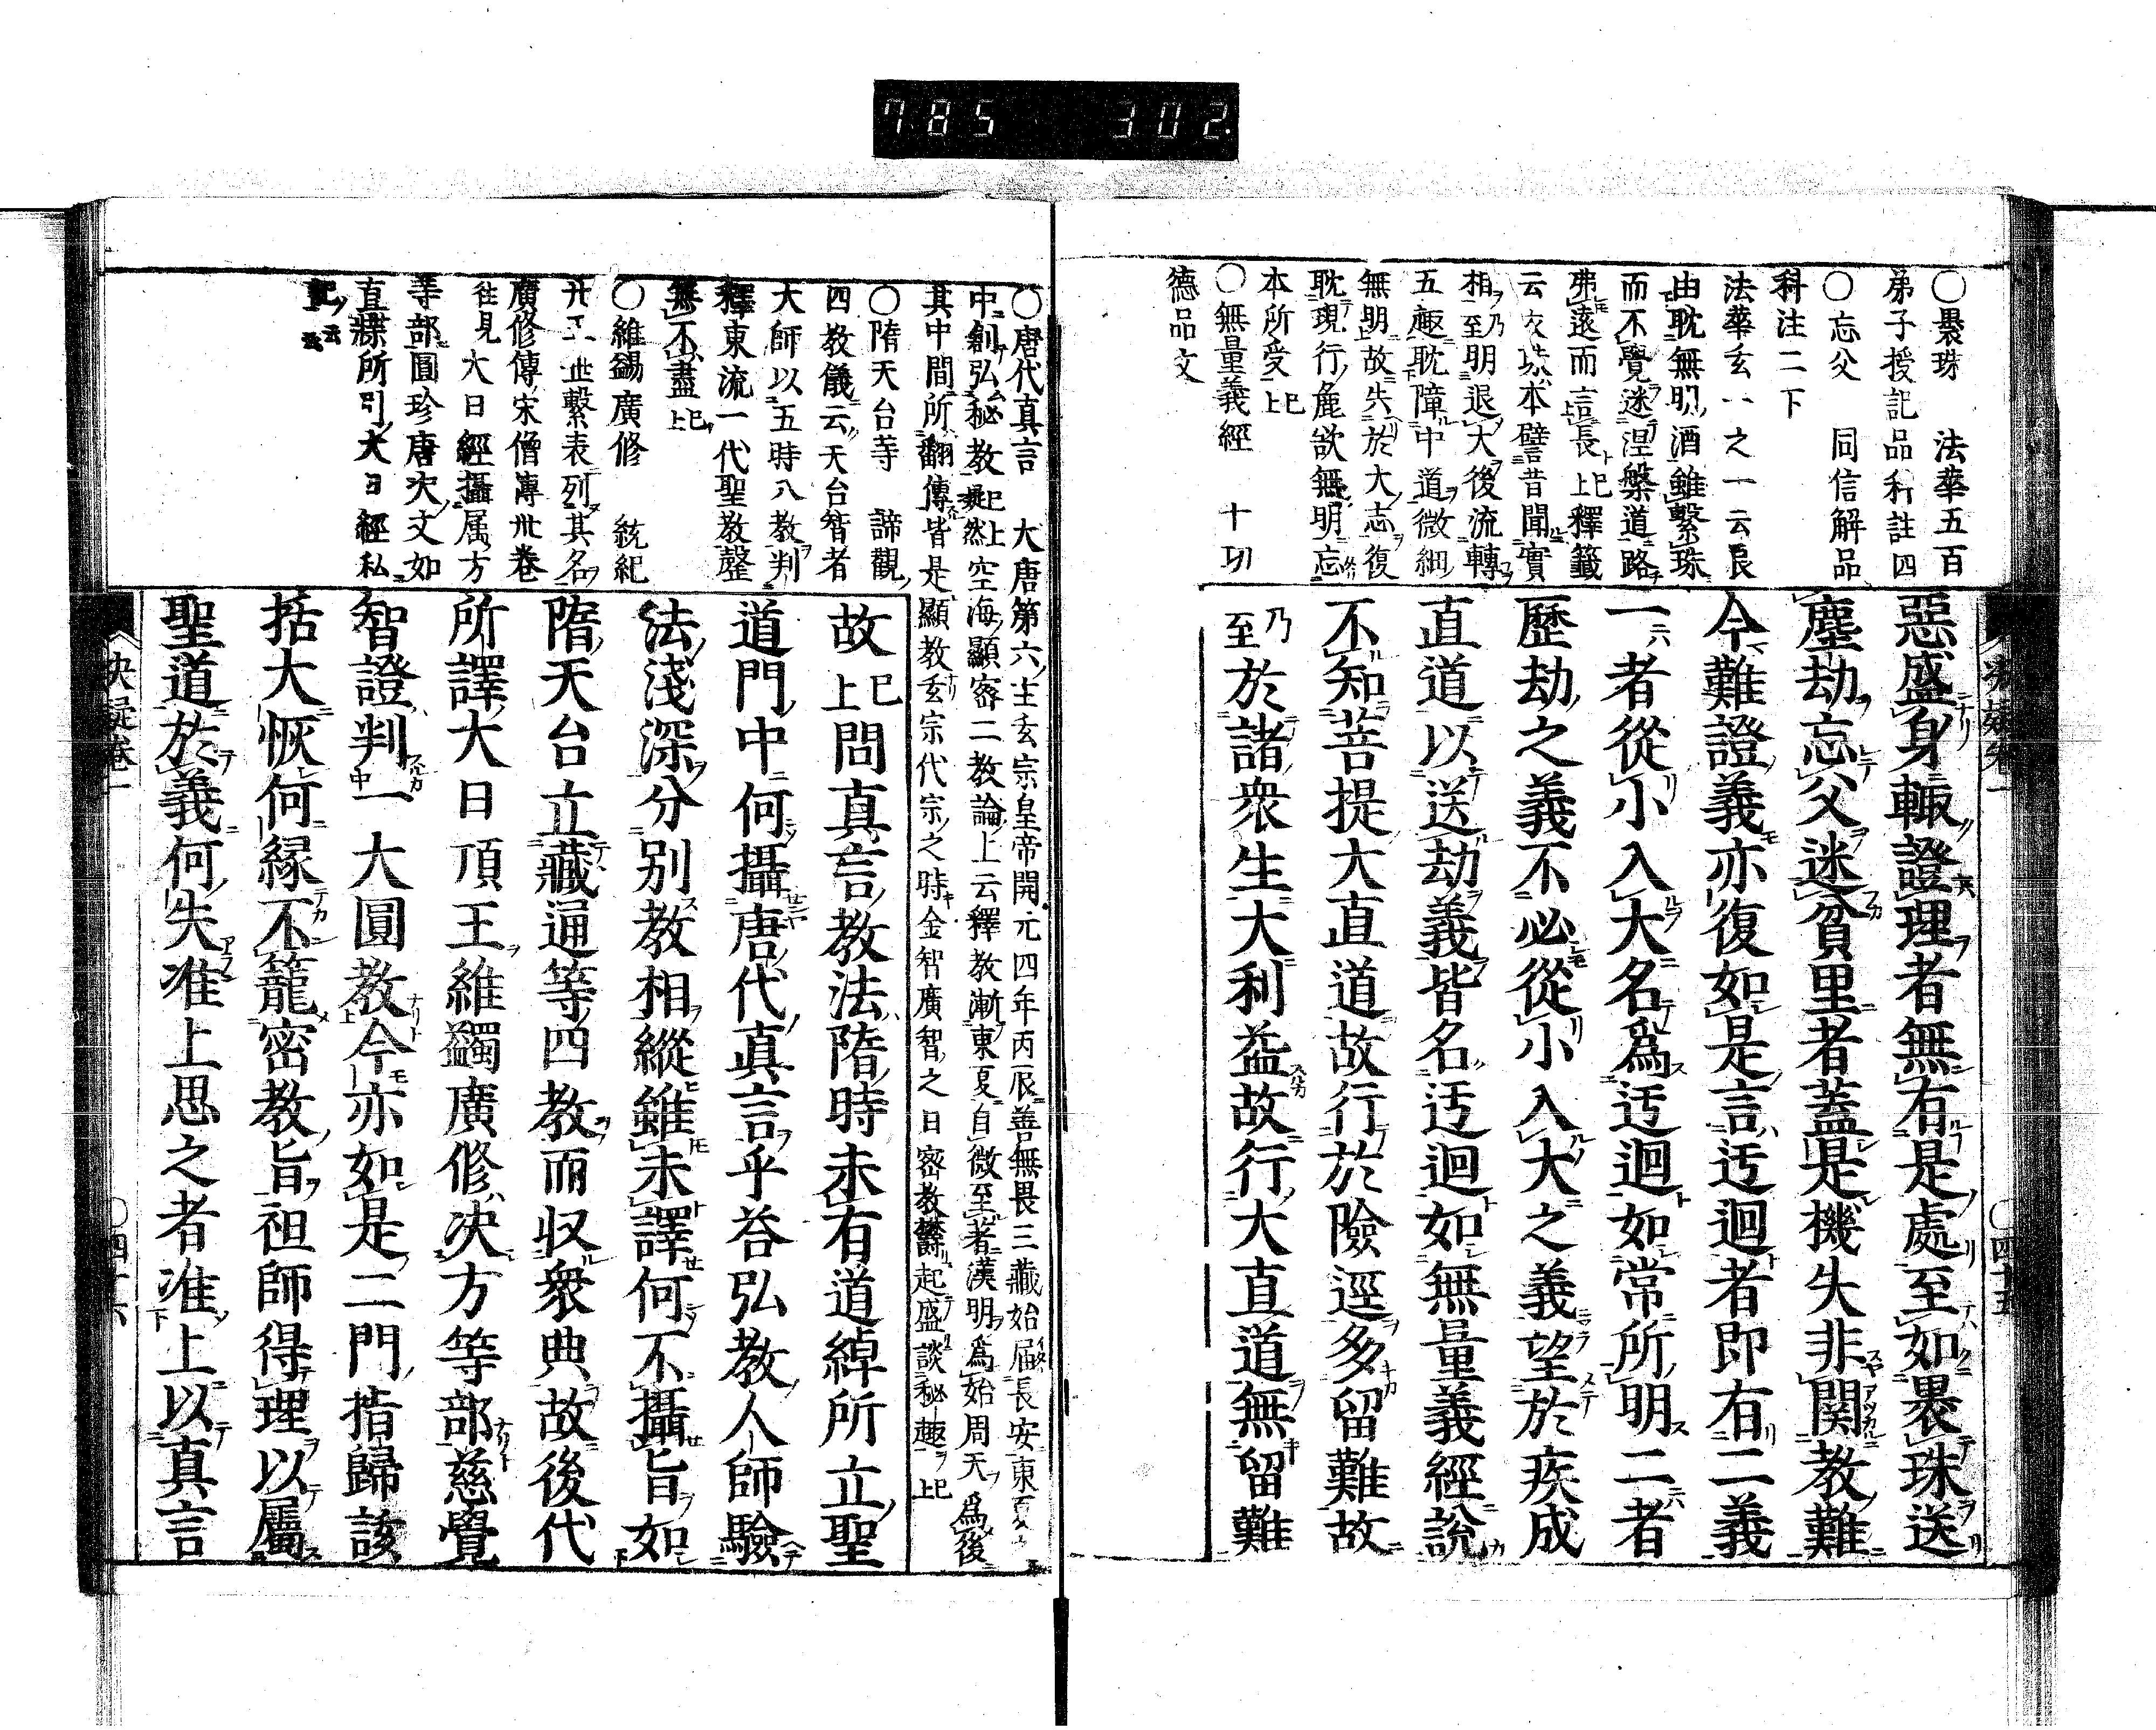 785 302
〇褁珠 法華五百
弟子授記品科註四
〇忘父 同信解品
科注二下
法華玄一之一云良
由耽無明酒雖繫珠
而不覺迷涅槃道路
弗遠而言長已上釋籤
相乃至明退大後流轉
五趣耽障中道微細
無明故失於大志復
耽現行麁欲無明忘
本所受已上
〇無量義經 十功
德品文
惡盛身輙證理者無有是處至如褁珠送
塵劫忘父迷貧里者蓋是機失非関教難
今難證義亦復如是言迃迴者即有二義
一者從小入大名爲迃迴如常所明二者
歷劫之義不必從小入大之義望於疾成
直道以送劫義皆名迃迴如無量義經說
不知菩提大直道故行於險逕多留難故
乃至於諸衆生大利益故行大直道無留難
決疑卷一
〇四十五
〇唐代真言 大唐第六主玄宗皇帝開元四年丙辰善無畏三藏始届長安東夏
中創弘秘教已上 空海顯密二教論上云釋教漸東夏自微至著漢明爲始周天爲後
其中間所翻傳皆是顯教玄宗代宗之時金智廣智之日密教欝起盛談秘趣已上
〇隋天台寺 諦觀
四教儀云天台智者
大師以五時八教判
釋東流一代聖教罄
無不盡已上
〇維蠲廣修 統紀
廣修傳宋僧傳卅卷
往見 大日經攝属方
等部圓珍唐决文如
直牒所引大日經私
記云云
故已上問真言教法隋時未有道綽所立聖
道門中何攝唐代真言乎荅弘教人師驗
法淺深分别教相縱雖未譯何不攝旨如
隋天台立藏通等四教而収衆典故後代
所譯大日頂王維蠲廣修决方等部慈覺
智證判一大圓教今亦如是二門指歸該
括大恢何緣不籠密教旨祖師得理以屬
聖道於義何失准上思之者准上以真言
決疑卷一
〇四十六